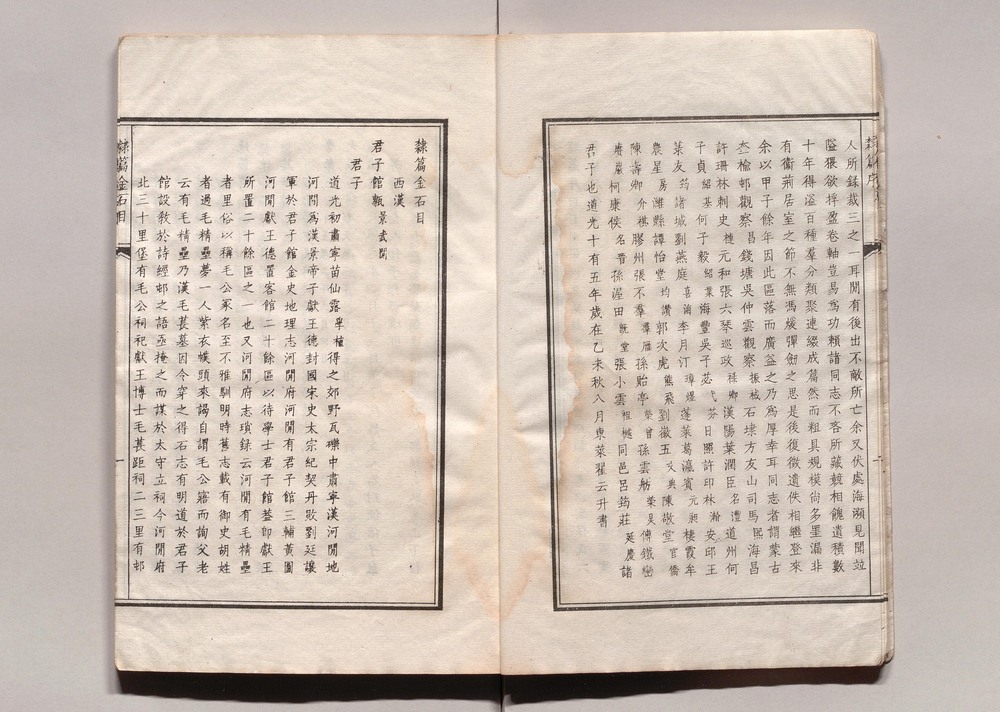 隸篇序
人所録裁三之一耳閒有後出不敵所亡余又伏處海瀕見聞竝
隘猥欲裒盈卷軸豈易爲功賴諸同志不吝所藏競相餽遺積數
十年得溢百種羣分類聚連綴成篇然而粗具規模尚多罣漏非
有衞荊居室之節不無馮煖彈劍之思是後復徵遺佚相繼登來
余以甲子餘年因此區落而廣益之乃爲厚幸耳同志者謂蒙古
杢楡邨觀察昌錢塘吳仲雲觀察振棫石埭方友山司馬熙海昌
許珊林刺史槤元和張六琴巡政祿卿漢陽葉潤臣名灃道州何
子貞紹基何子毅紹業海豐吳子苾弋芬日照許印林瀚安邱王
菉友筠諸城劉燕庭喜海李月汀璋煜蓬萊葛瀛賓元昶棲霞牟
農星房濰縣譚怡堂均讚郭次虎熊飛劉徽五文典陳傲堂官僑
陳壽卿介祺膠州張不羣羣雁孫貽亭榮曾孫雲舫榮吳傅鐵巒
賡巖柯康侯名晉孫渥田旣堂張小雲祖樾同邑呂筠莊延慶諸
君子也道光十有五年歲在乙未秋八月東萊翟云升書
隸篇金石目
西漢
君子館甎景武閒
君子
道光初肅寧苗仙露學植得之郊野瓦礫中肅寧漢河閒地
河閒爲漢景帝子獻王德封國宋史太宗紀契丹敗劉廷讓
軍於君子館金史地理志河閒府河閒有君子館三輔黃圖
河閒獻王德置客館二十餘區以待學士君子館葢即獻王
所置二十餘區之一也又河閒府志瑣録云河閒有毛精壘
者里俗以稱毛公冢名至不雅馴明時舊志載有御史胡姓
者過毛精壘夢一人紫衣幞頭來謁自謂毛公寤而詢父老
云有毛精壘乃漢毛萇墓因今穿之得石志有明道於君子
館設敎於詩經邨之語亟掩之而謀於太守立祠今河閒府
北三十里堡有毛公祠祀獻王博士毛萇距祠二三里有邨
隸篇金石目